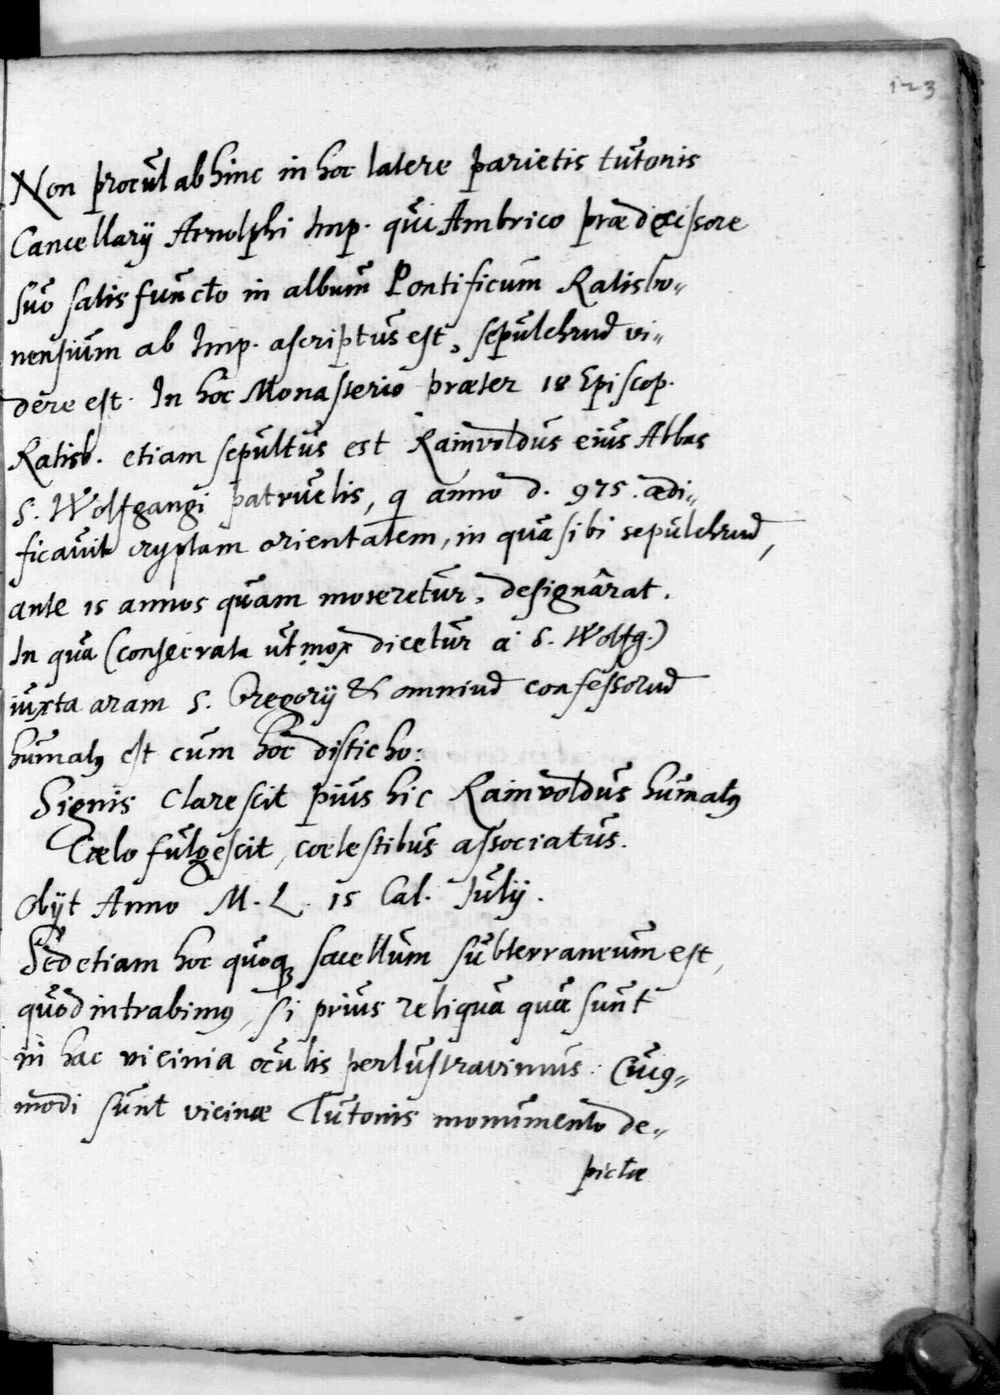 123
Non procul ab hinc in hoc latere parietis tutonis
Cancellarij Arnolphi Imp. qui Ambrico prædecissore
suo satis functo in album Pontificum Ratisbo-
nensium ab Imp. ascriptus est, sepulchrū vi-
dere est. In hoc Monasterio præter 18 Episcop.
Ratisb. etiam sepultus est Rainvoldus eius Abbas
S. Wolfgangi patruelis, q anno d. 975. ædi-
ficavit cryptam orientalem, in qua sibi sepulchrū,
ante 15 annos quam moreretur, designârat.
In qua (consecrata ut mox dicetur à S. Wolfg.)
iuxta aram S. Gregorij & omniū confessorū
humatꝰ est cum hoc disticho:
Signis clarescit pius hic Rainvoldus humatꝰ
Cælo fulgescit, cœlestibus associatus.
Obijt Anno M. L. 15 Cal. Julij.
Sed etiam hoc quoqꝫ sacellum subterraneum est,
quod intrabimꝰ, si prius reliqua quæ sunt
in hac vicinia oculis perlustravimus. Cuiꝰ-
modi sunt vicinæ Tutonis monumento de-
pictæ